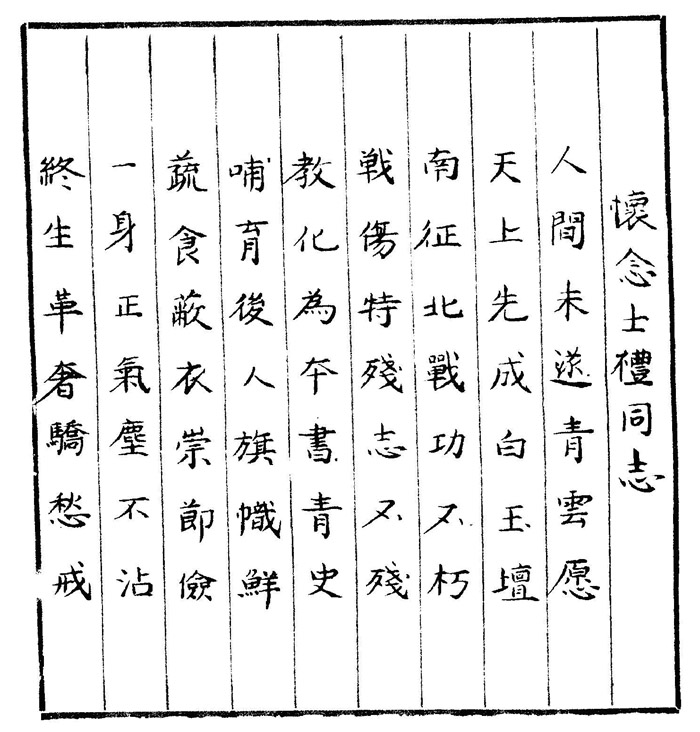 懷念士禮同志
人間未遂青雲愿
天上先成白玉壇
南征北戰功不朽
戦傷特殘志不殘
教化為本書青史
哺育後人旗幟鮮
蔬食蔽衣崇節儉
一身正氣塵不沾
終生革奢驕愁戒